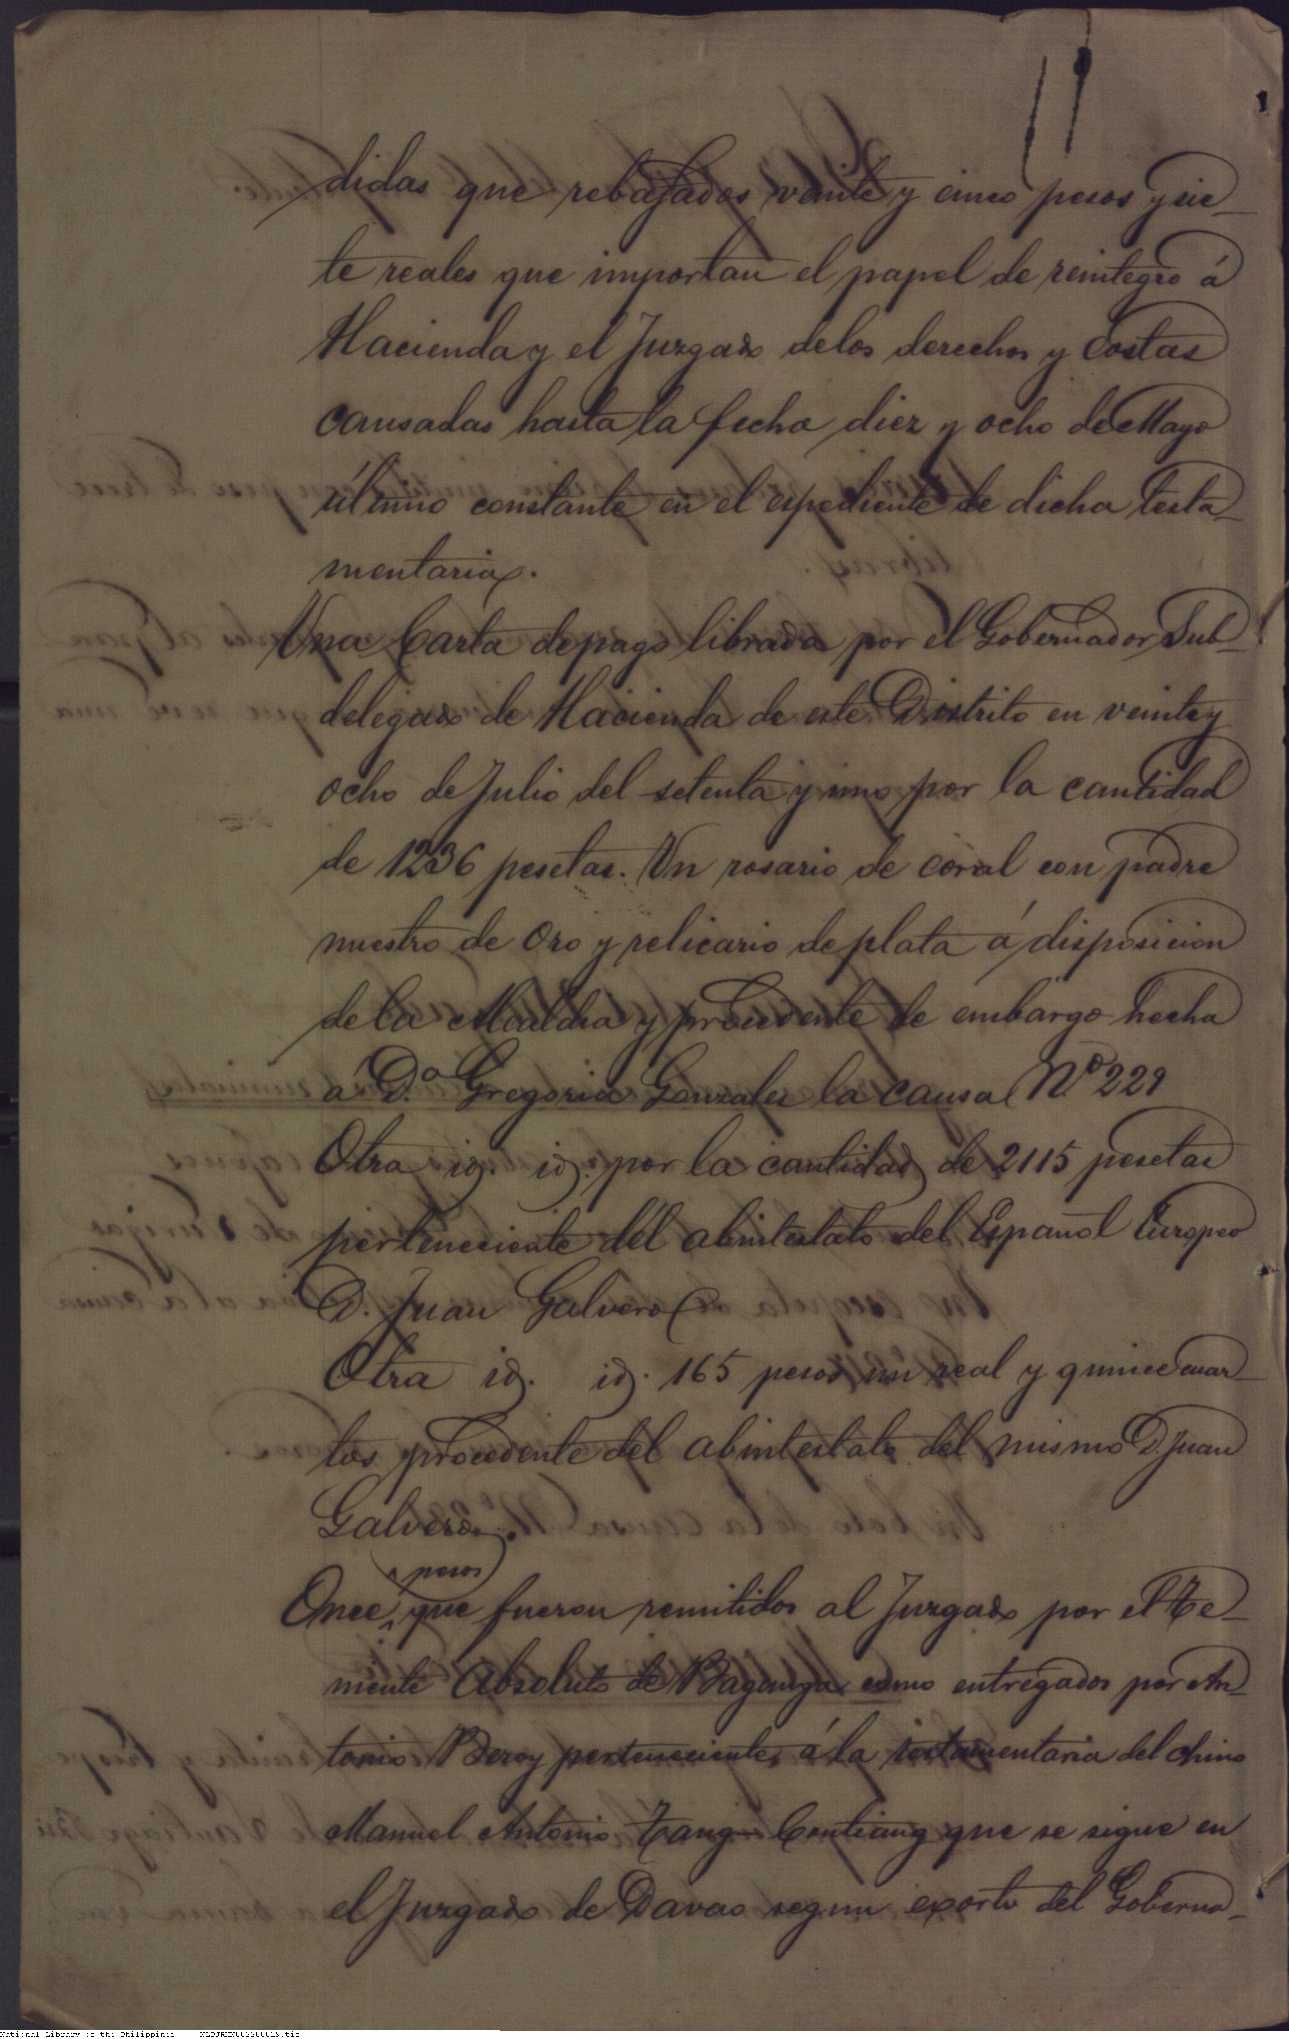 didas que rebajados veinte y cinco pesos y sie-
te reales que importan el papel de reintegro á
Hacienda y el Juzgado delos derechos y costas
causadas hasta la fecha diez y ocho de Mayo
último constante en el espediente de dicha testa-
mentaria.
Una Carta depago librada por el Gobernador Sub-
delegado de Hacienda de este Distrito en veinte y
ocho de Julio del setenta y uno por la cantidad
de 1236 pesetas. Un rosario de coral con padre
nuestro de oro y relicario de plata á disposicion
de la Alcaldia y procedente de embargo hecha
á D.ª Gregoria Gonzales la causa Nº 229
Otra id. id. por la cantidad de 2115 pesetas
perteneciente del abintestato del Español Europeo
D. Juan Galvero
Otra id. id. 165 pesos un real y quince cuar-
tos procedente del abintestato del mismo D. Juan
Galvero.
pesos
Once que fueron remitidos al Juzgado por el Te-
niente Absoluto de Baganga como entregados por An-
tonio Beroy perteneciente, á la testamentaria del chino
Manuel Antonio Tang- que se sigue en
el Juzgado de Davao segun exorto del Goberna-
National Library of the Philippines